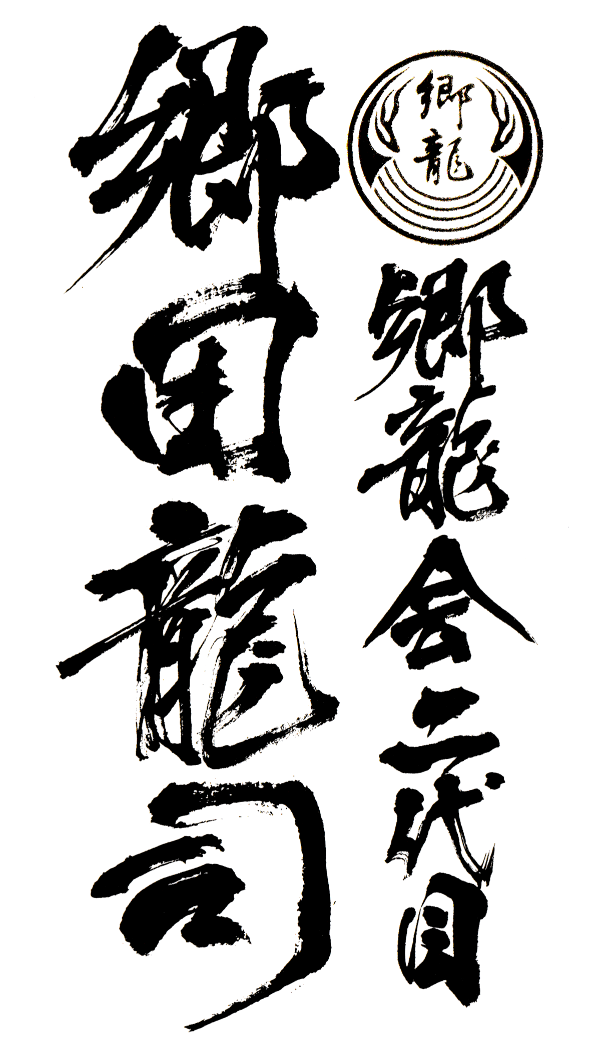 郷龍
郷龍会二代目
郷田龍司